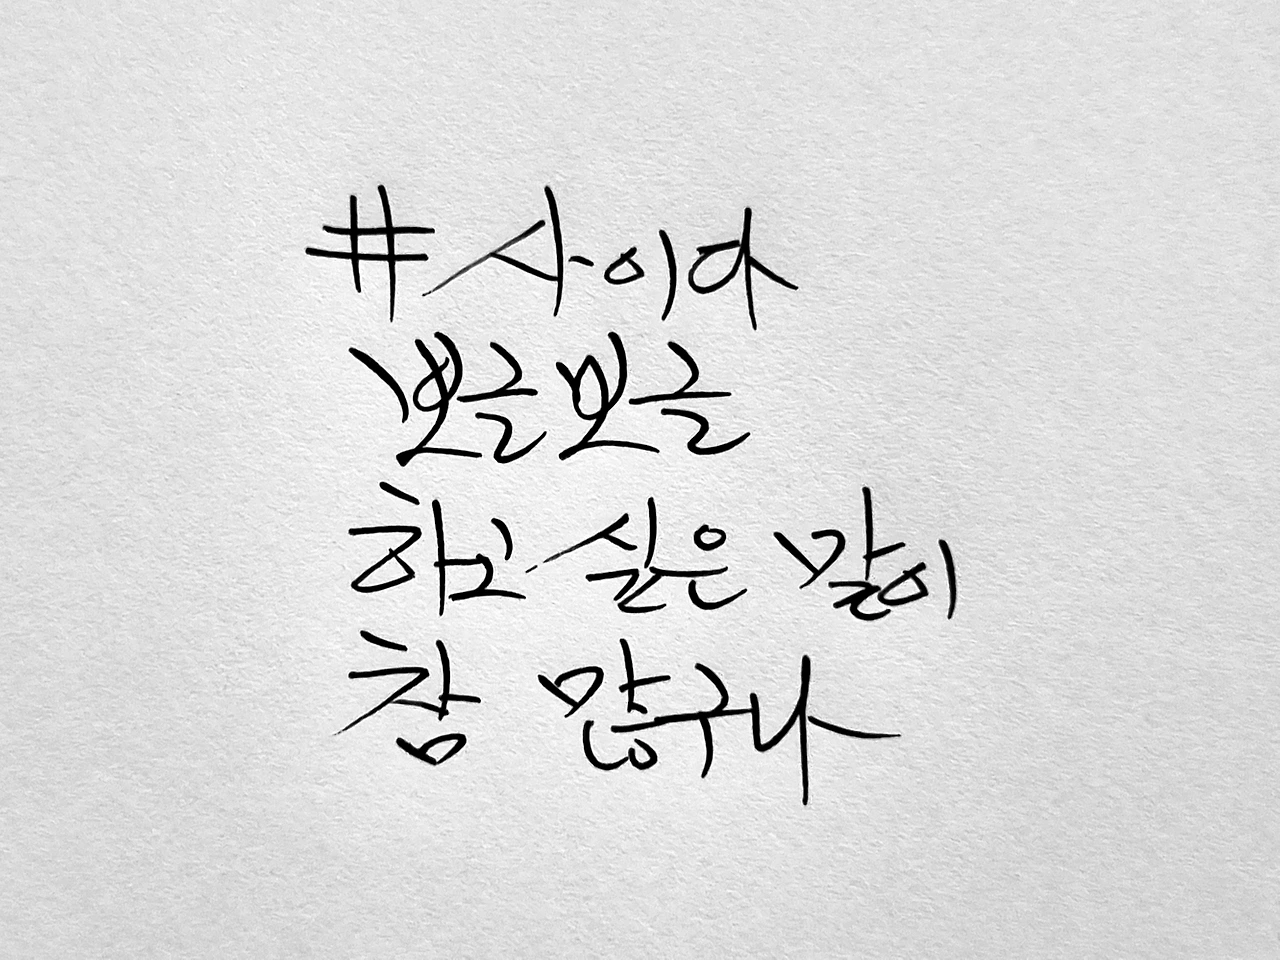 #사이다
뽀글뽀글
하고 싶은 말이
참 많구나